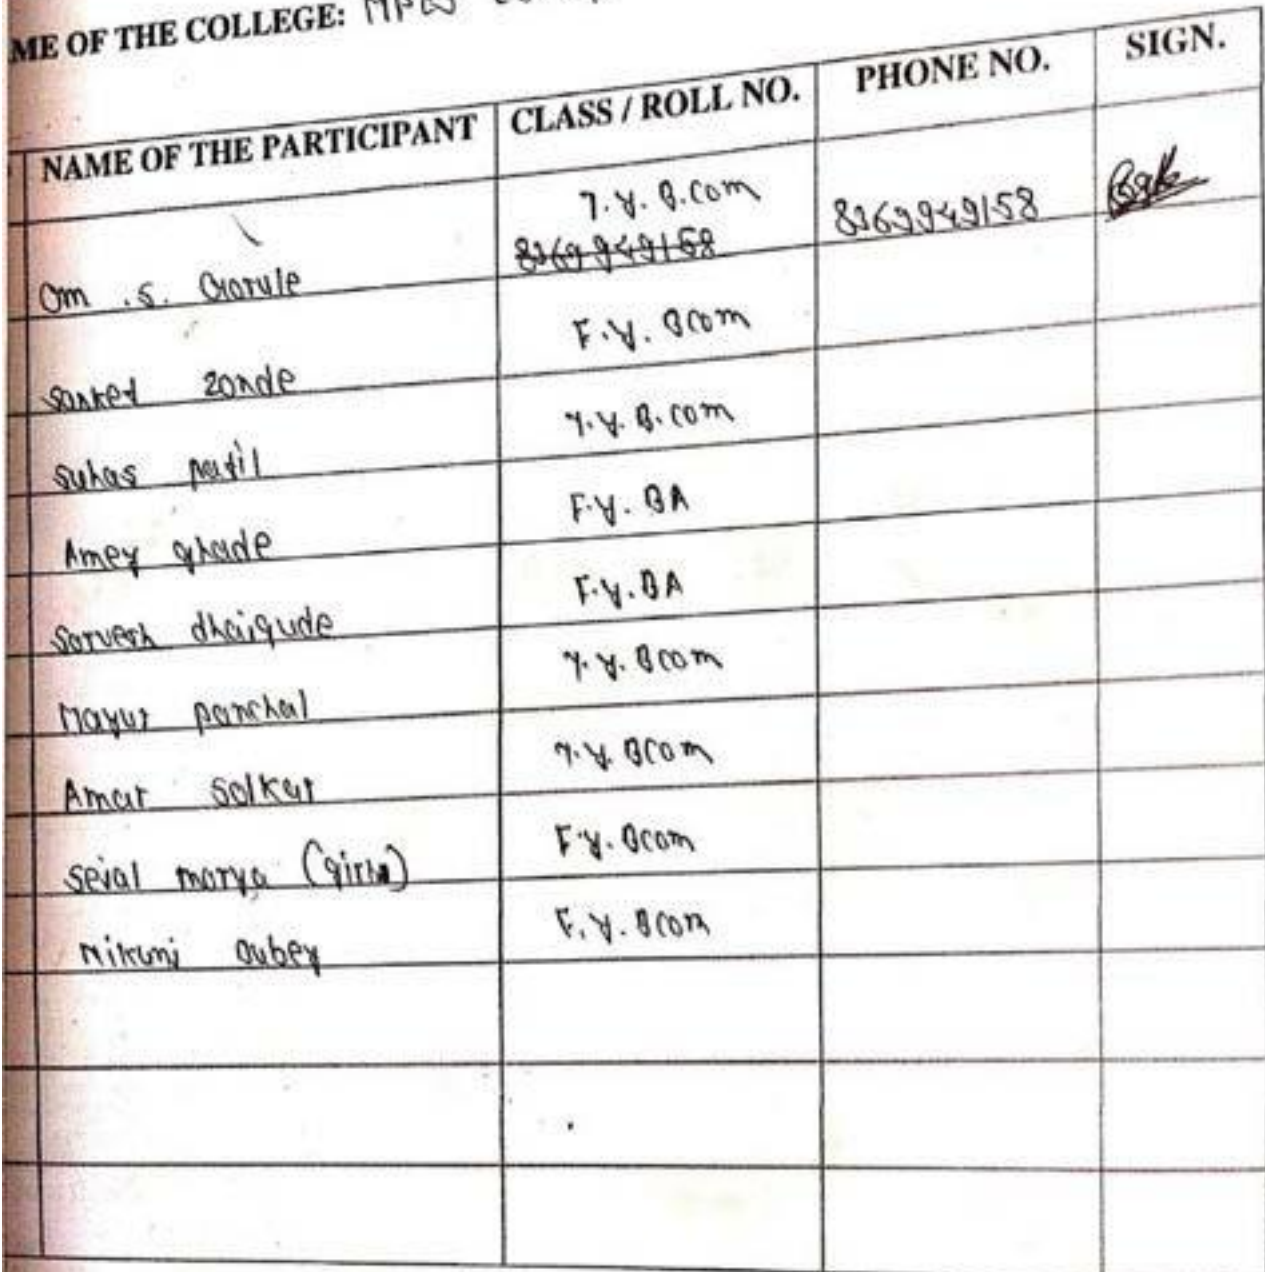 ME OF THE COLLEGE:
NAME OF THE PARTICIPANT CLASS / ROLL NO. PHONE NO. SIGN.
Om .S. T.Y. B.com 8369949158
8369949158
Sanket zonde F.Y. Bcom
Suhas patil T.Y. B.com
Amey ghade F.Y. BA
Sarvesh dhaigude F.Y. BA
Mayur panchal T.Y. Bcom
Amar Solkar T.Y. Bcom
Sejal morya (girls) F.Y. Bcom
Nikunj Dubey F.Y. Bcom